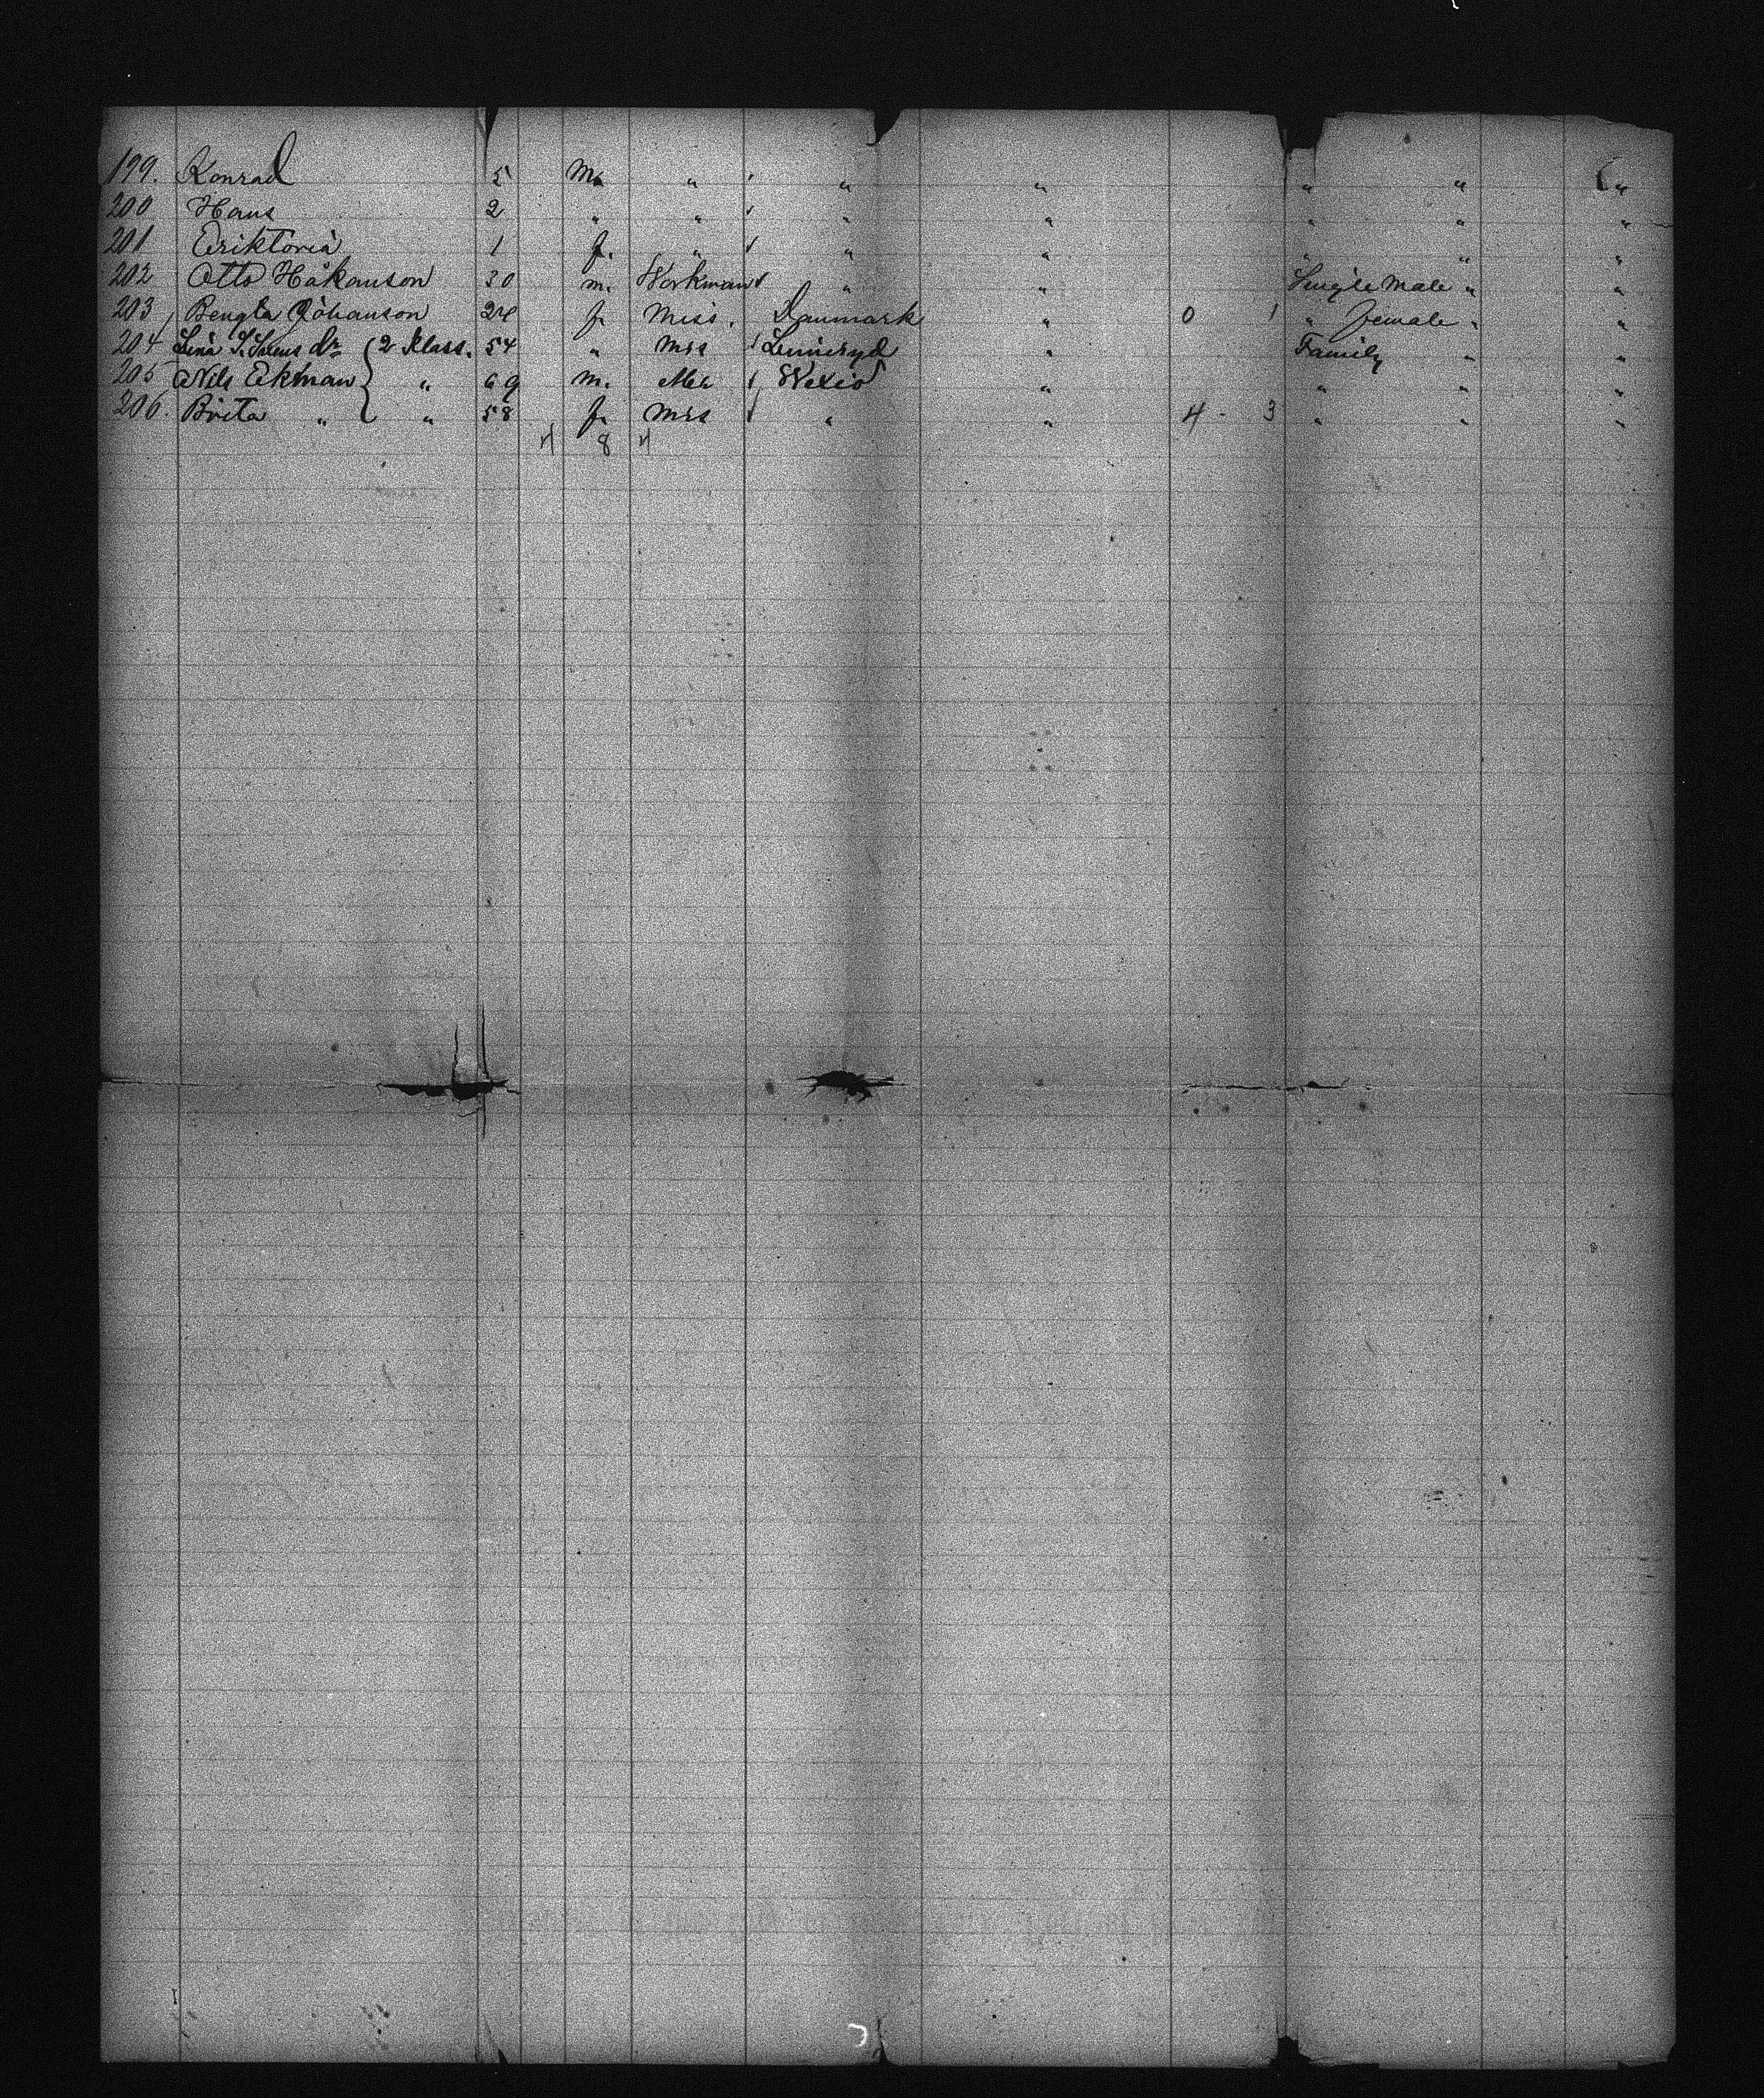 199. Konrad 5 M. " " " " " "
200 Hans 2 " " " " " " "
201 Eriktoria 1 f. " " " " " "
202 Otto Håkanson 30 m. Workman " " Single Male " "
203 Bengta Johanson 24 f. Miss. Danmark " 0 1 " female " "
204 Lina dr 2 Klass. 54 " Mrs " Family " "
205 Nils Ekman " 69 m. Wexiö " " " "
206. Brita " " 58 f. Mrs " " 4 - 3 " " "
4 8 4